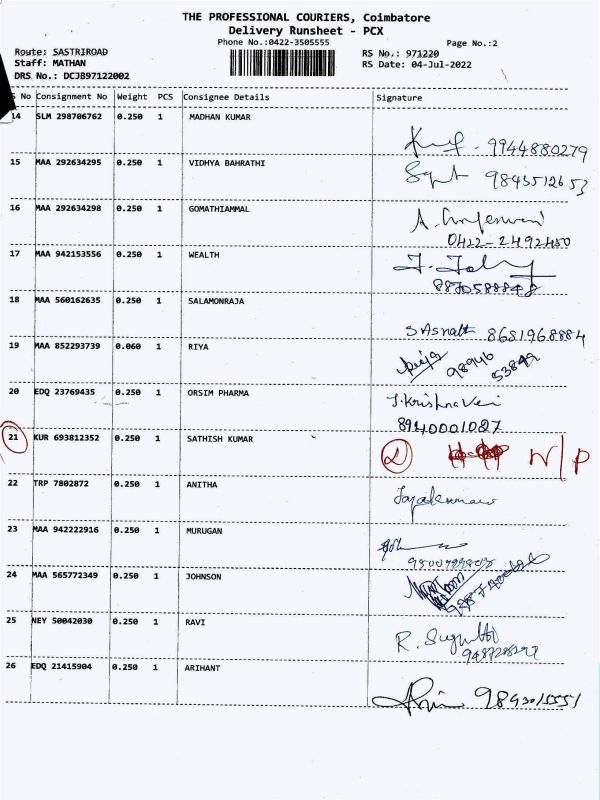 THE PROFESSIONAL COURIERS, Coimbatore
Delivery Runsheet - PCX
Phone No.:0422-3505555
Page No.:2
Route: SASTRIROAD
RS No.: 971220
Staff: MATHAN
RS Date: 04-Jul-2022
DRS No.: DCJB97122002
S No Consignment No Weight PCS Consignee Details Signature
14 SLM 298706762 0.250 1 MADHAN KUMAR
9944880279
15 MAA 292634295 0.250 1 VIDHYA BAHRATHI
9843512653
16 MAA 292634298 0.250 1 GOMATHIAMMAL
0422-2492450
17 MAA 942153556 0.250 1 WEALTH
8870588848
18 MAA 560162635 0.250 1 SALAMONRAJA
8681968884
19 MAA 852293739 0.060 1 RIYA
98946
53849
20 EDQ 23769435 0.250 1 ORSIM PHARMA
J.Krishnaveni
8940001087
21 KUR 693812352 0.250 1 SATHISH KUMAR
N/P
22 TRP 7802872 0.250 1 ANITHA
23 MAA 942222916 0.250 1 MURUGAN
24 MAA 565772349 0.250 1 JOHNSON
25 NEY 50042030 0.250 1 RAVI
26 EDQ 21415904 0.250 1 ARIHANT
9843015551